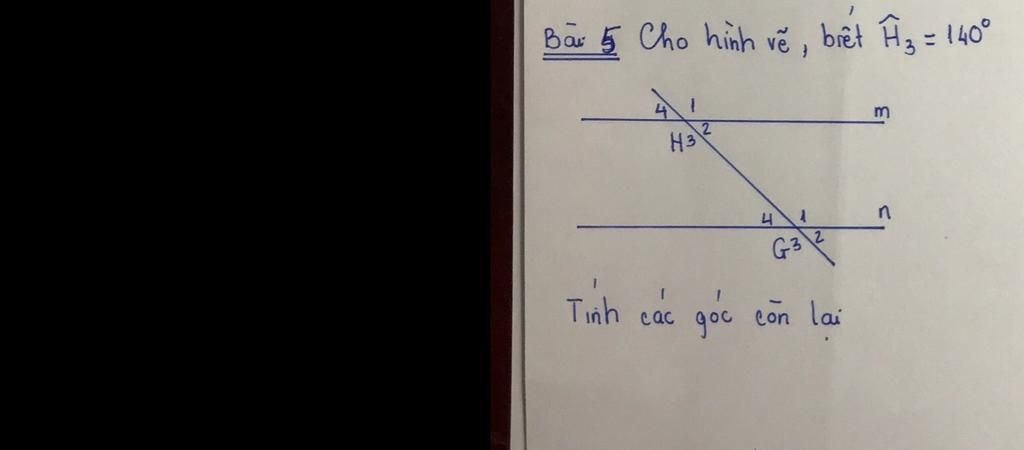 Bài 5 Cho hình vẽ, biết Ĥ₃ = 140°
4 1 m
2
H 3
4 1 n
2
G 3
Tính các góc còn lại